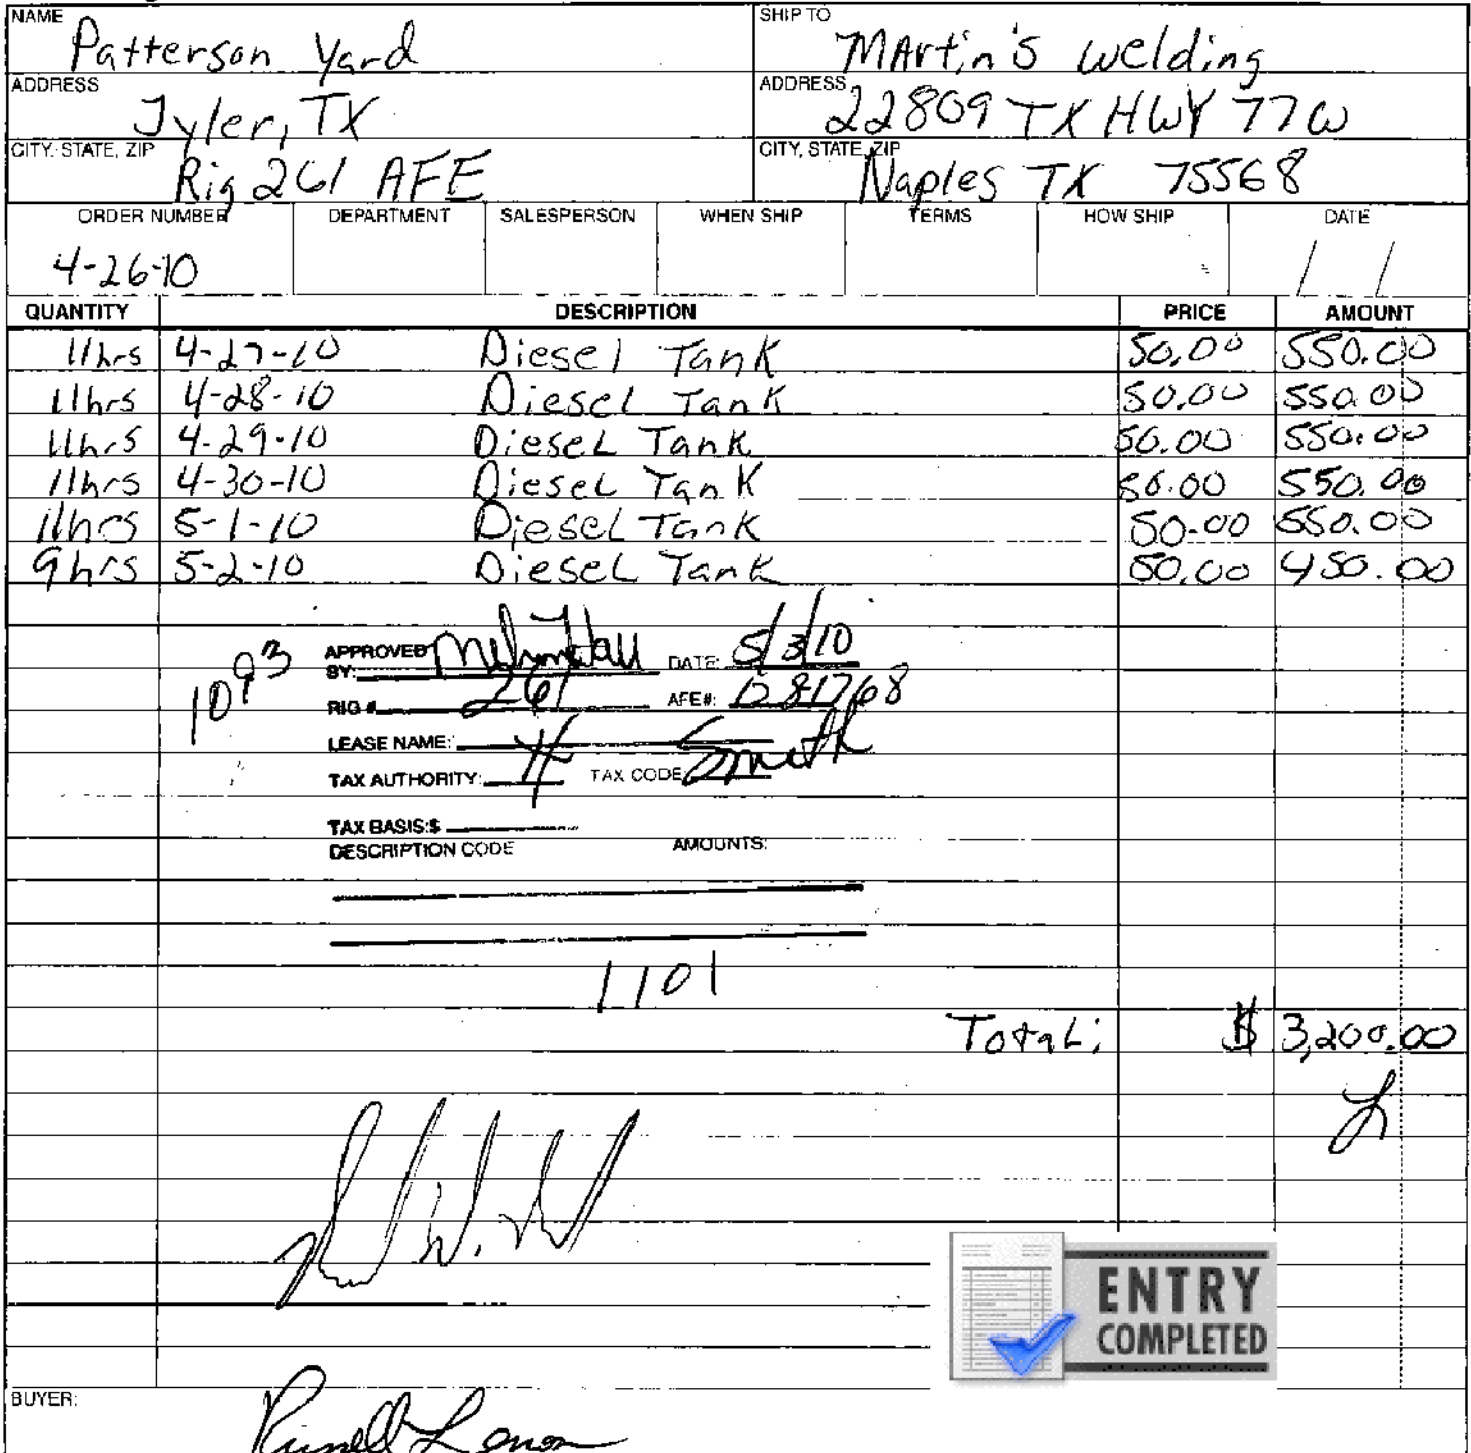 NAME SHIP TO
Patterson Yard MArtin's welding
ADDRESS ADDRESS
Tyler, TX 22809 TX HWY 77W
CITY, STATE, ZIP CITY, STATE, ZIP
Rig 261 AFE Naples TX 75568
ORDER NUMBER DEPARTMENT SALESPERSON WHEN SHIP TERMS HOW SHIP DATE
4-26-10 / /
QUANTITY DESCRIPTION PRICE AMOUNT
11hrs 4-27-10 Diesel Tank 50.00 550.00
11hrs 4-28-10 Diesel Tank 50.00 550.00
11hrs 4-29-10 Diesel Tank 50.00 550.00
11hrs 4-30-10 Diesel Tank 50.00 550.00
11hrs 5-1-10 Diesel Tank 50.00 550.00
9hrs 5-2-10 Diesel Tank 50.00 450.00
1093 APPROVED BY: DATE: 5/3/10
RIG # 261 AFE#:
LEASE NAME: Smith
TAX AUTHORITY: TAX CODE
TAX BASIS:$
DESCRIPTION CODE AMOUNTS:
1101
Total: $ 3,200.00
ENTRY
COMPLETED
BUYER: